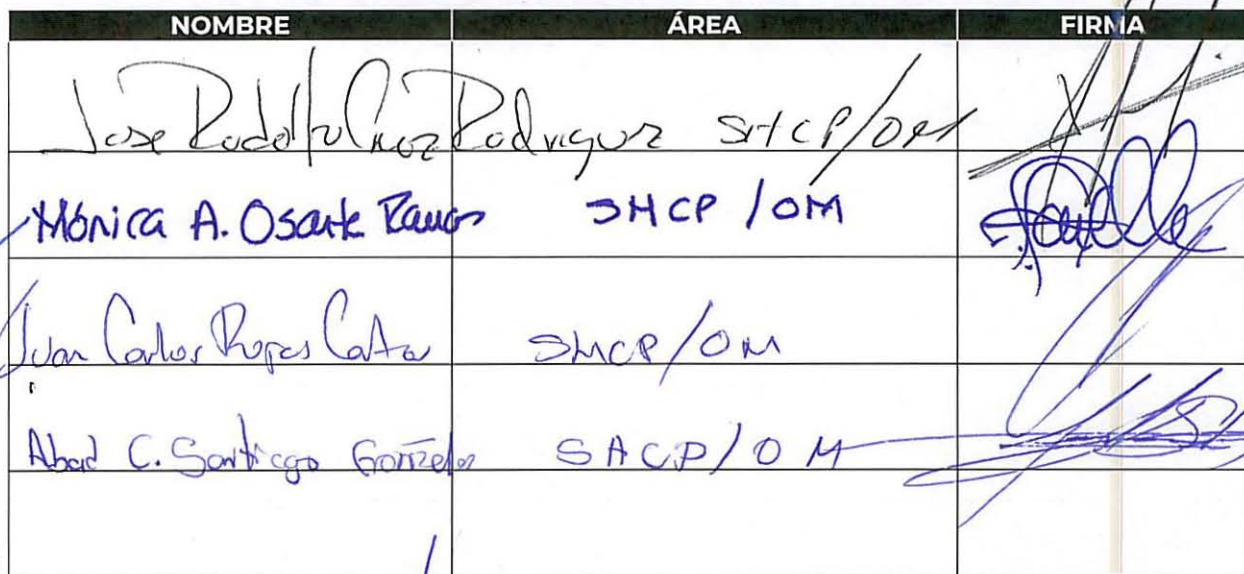 NOMBRE ÁREA FIRMA
Jose Rodolfo Cruz Rodriguez SHCP/OM
Mónica A. Osarte Ramos SHCP/OM
Juan Carlos SHCP/OM
Abad C. Santiago González SACP/OM